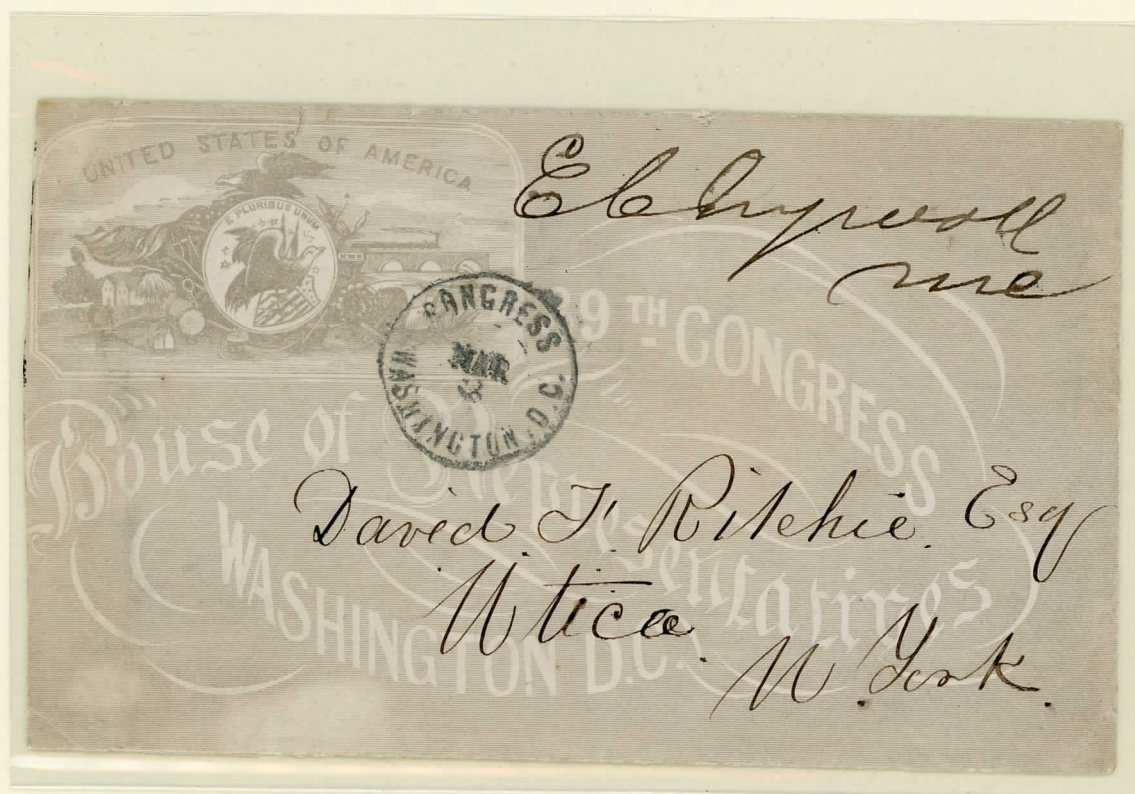 UNITED STATES OF AMERICA
E PLURIBUS UNUM
E C
mc
CONGRESS
MAR
3
WASHINGTON. D.C.
9TH CONGRESS
House of Representatives
WASHINGTON D.C.
David F. Ritchie. Esq
Utica.
N. York.